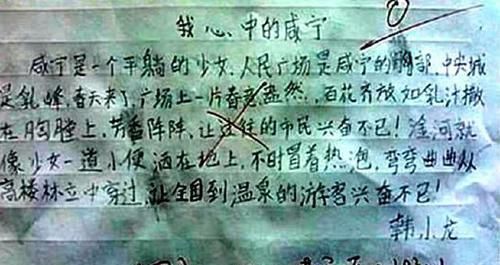 0
我心中的咸宁
咸宁是一个平躺的少女,人民广场是咸宁的胸部,中央城
是乳峰,春天来了,广场上一片春意盎然,百花齐放如乳汁撒
在胸膛上,芳香阵阵,让过往的市民兴奋不已!淦河就
像少女一道小便洒在地上,不时冒着热泡,弯弯曲曲从
高楼林立中穿过,让全国到温泉的游客兴奋不已!
韩小龙